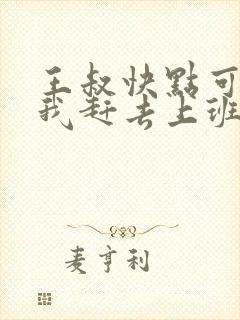 王叔快點可
我赶去上班
麦亨利